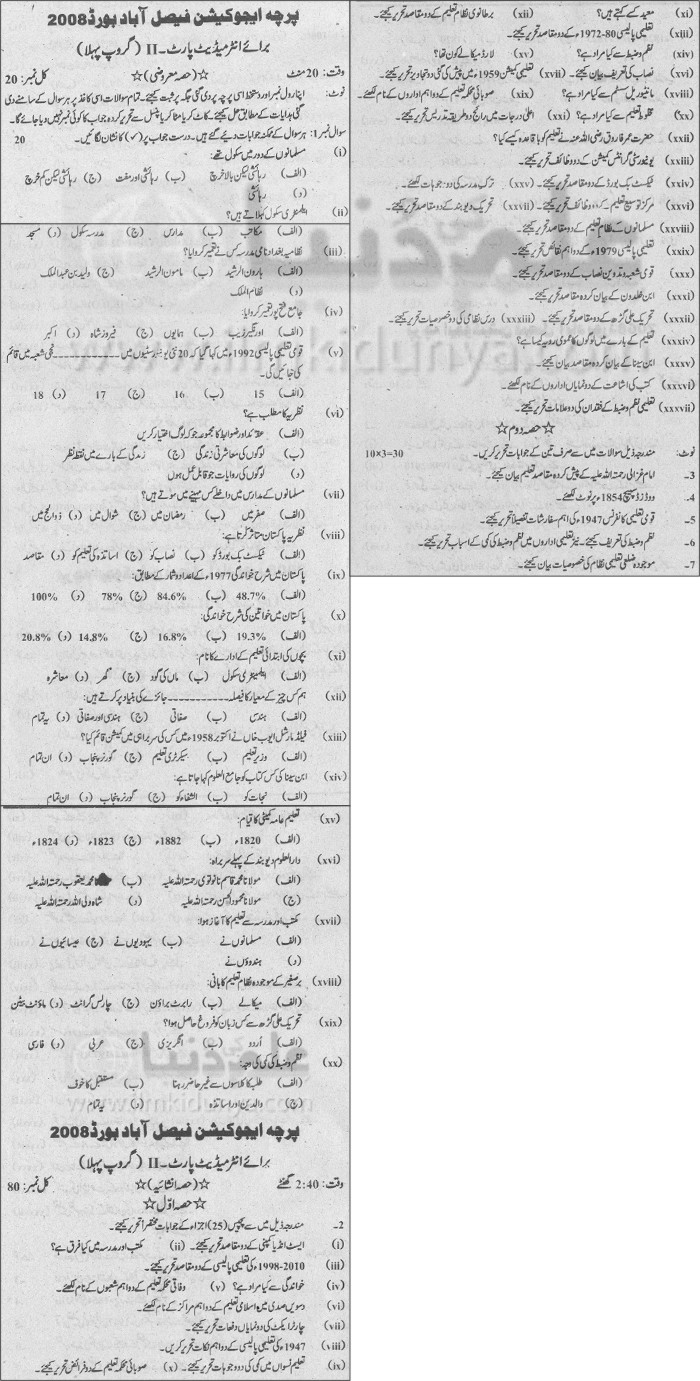 پرچہ ایجوکیشن فیصل آباد بورڈ 2008
برائے انٹرمیڈیٹ پارٹ۔ II (گروپ پہلا)
وقت: 20 منٹ ☆ (حصہ معروضی) ☆ کل نمبر: 20
نوٹ: اپنا رول نمبر اور دستخط اسی پرچہ پر دی گئی جگہ پر ثبت کیجئے۔ تمام سوالات اسی کاغذ پر ہر سوال کے سامنے دی
گئی ہدایات کے مطابق حل کیجئے۔ کاٹ کر یا مٹا کر یا پنسل سے تحریر کردہ جواب کا کوئی نمبر نہیں دیا جائے گا۔
سوال نمبر 1: ہر سوال کے ممکنہ جوابات دیے گئے ہیں۔ درست جواب پر (✓) کا نشان لگائیں۔ 20
(i) مسلمانوں کے دور میں سکول تھے:
(الف) رہائشی لیکن بالا خرچ (ب) رہائشی اور مفت (ج) رہائشی لیکن کم خرچ
(د) رہائشی
(ii) ایلیمنٹری سکول کہلاتے ہیں؟
(الف) مکاتب (ب) مدارس (ج) مدرسہ سکول (د) مسجد
(iii) نظامیہ بغداد نامی مدرسہ کس نے تعمیر کروایا؟
(الف) ہارون الرشید (ب) مامون الرشید (ج) ولید بن عبدالملک
(د) نظام الملک
(iv) جامع فتح پور تعمیر کروایا:
(الف) اورنگزیب (ب) ہمایوں (ج) فیروز شاہ (د) اکبر
(v) قومی تعلیمی پالیسی 1992ء میں کہا گیا کہ 20 نئی یونیورسٹیوں میں ـــــــــ نجی شعبہ میں قائم
کی جائیں گی۔
(الف) 15 (ب) 16 (ج) 17 (د) 18
(vi) نظریہ کا مطلب ہے؟
(الف) عقائد اور ضوابط کا مجموعہ جو کہ لوگ اختیار کریں
(ب) لوگوں کی معاشرتی زندگی (ج) زندگی کے بارے میں نقطہ نظر
(د) لوگوں کی روایات جو قابل عمل ہوں
(vii) مسلمانوں کے مدارس میں داخلے کس مہینے میں ہوتے ہیں؟
(الف) صفر میں (ب) رمضان میں (ج) شوال میں (د) ذوالحج میں
(viii) نظریہ پاکستان متاثر کرتا ہے:
(الف) ٹیکسٹ بک بورڈ کو (ب) نصاب کو (ج) اساتذہ کی تعلیم کو (د) مقاصد
(ix) پاکستان میں شرح خواندگی 1977ء کے اعداد و شمار کے مطابق:
(الف) 48.7% (ب) 84.6% (ج) 78% (د) 100%
(x) پاکستان میں خواتین کی شرح خواندگی:
(الف) 19.3% (ب) 16.8% (ج) 14.8% (د) 20.8%
(xi) بچوں کی ابتدائی تعلیم کے ادارے کا نام:
(الف) ایلیمنٹری سکول (ب) ماں کی گود (ج) گھر (د) معاشرہ
(xii) ہم کس چیز کے معیار کا فیصلہ ـــــــــ جائزے کی بنیاد پر کرتے ہیں:
(الف) ہندسی (ب) صفاتی (ج) ہندسی اور صفاتی (د) یہ تمام
(xiii) فیلڈ مارشل ایوب خاں نے اکتوبر 1958ء میں کس کی سربراہی میں کمیشن قائم کیا؟
(الف) وزیر تعلیم (ب) سیکرٹری تعلیم (ج) گورنر پنجاب (د) ان تمام
(xiv) ابن سینا کی کس کتاب کو جامع العلوم کہا جاتا ہے:
(الف) نجات کو (ب) الشفاء کو (ج) گورنر پنجاب (د) ان تمام
(xv) تعلیم عامہ کمیٹی کا قیام:
(الف) 1820ء (ب) 1882ء (ج) 1823ء (د) 1824ء
(xvi) دارالعلوم دیوبند کے پہلے سربراہ:
(الف) مولانا محمد قاسم نانوتوی رحمتہ اللہ علیہ (ب) محمد یعقوب رحمتہ اللہ علیہ
(ج) مولانا محمود الحسن رحمتہ اللہ علیہ (د) شاہ ولی اللہ رحمتہ اللہ علیہ
(xvii) مکتب اور مدرسہ سے تعلیم کا آغاز ہوا:
(الف) مسلمانوں نے (ب) یہودیوں نے (ج) عیسائیوں نے
(د) ہندوؤں نے
(xviii) برصغیر کے موجودہ نظام تعلیم کا بانی:
(الف) میکالے (ب) رابرٹ براؤن (ج) چارلس گرانٹ (د) ماؤنٹ بیٹن
(xix) تحریک علی گڑھ سے کس زبان کو فروغ حاصل ہوا؟
(الف) اُردو (ب) انگریزی (ج) عربی (د) فارسی
(xx) نظم و ضبط کی کمی کی وجہ:
(الف) طلبہ کا کلاسوں سے غیر حاضر رہنا (ب) مستقبل کا خوف
(ج) والدین اور اساتذہ (د) یہ تمام
پرچہ ایجوکیشن فیصل آباد بورڈ 2008
برائے انٹرمیڈیٹ پارٹ۔ II (گروپ پہلا)
وقت: 2:40 گھنٹے ☆ (حصہ انشائیہ) ☆ کل نمبر: 80
☆ حصہ اوّل ☆
2۔ مندرجہ ذیل میں سے پچیس (25) اجزاء کے جوابات مختصراً تحریر کیجئے۔
(i) ایسٹ انڈیا کمپنی کے دو مقاصد تحریر کیجئے۔ (ii) مکتب اور مدرسہ میں کیا فرق ہے؟
(iii) 1998-2010ء کی تعلیمی پالیسی کے دو مقاصد تحریر کیجئے۔
(iv) خواندگی سے کیا مراد ہے؟ (v) وفاقی محکمہ تعلیم کے دو اہم شعبوں کے نام لکھئے۔
(vi) دسویں صدی میں اسلامی تعلیم کے دو اہم مراکز کے نام لکھئے۔
(vii) چارٹر ایکٹ کی دو نمایاں دفعات تحریر کیجئے۔
(viii) 1947ء کی تعلیمی پالیسی کے دو اہم نکات تحریر کریں۔
(ix) تعلیم نسواں میں کمی کی دو وجوہات تحریر کیجئے۔ (x) صوبائی محکمہ تعلیم کے دو فرائض تحریر کیجئے۔
(xi) معید کسے کہتے ہیں؟ (xii) برطانوی نظام تعلیم کے دو مقاصد تحریر کیجئے۔
(xiii) تعلیمی پالیسی 80-1972ء کے دو مقاصد تحریر کیجئے۔
(xiv) نظم و ضبط سے کیا مراد ہے؟ (xv) لارڈ میکالے کون تھا؟
(xvi) نصاب کی تعریف بیان کیجئے۔ (xvii) تعلیمی کمیشن 1959ء میں پیش کی گئی دو تجاویز تحریر کیجئے۔
(xviii) مانیٹوریل سسٹم سے کیا مراد ہے؟ (xix) صوبائی محکمہ تعلیم کے دو اہم اداروں کے نام لکھئے۔
(xx) مخلوط تعلیم سے کیا مراد ہے؟ (xxi) اعلیٰ درجات میں رائج دو طریقہ تدریس تحریر کیجئے۔
(xxii) حضرت عمر فاروق رضی اللہ عنہ نے تعلیم کو باقاعدہ کیسے کیا؟
(xxiii) یونیورسٹی گرانٹس کمیشن کے دو وظائف تحریر کیجئے۔
(xxiv) ٹیکسٹ بک بورڈ کے دو مقاصد تحریر کیجئے۔ (xxv) ترک مدرسہ کی دو وجوہات لکھئے۔
(xxvi) مرکز توسیع تعلیم کے دو وظائف تحریر کیجئے۔ (xxvii) تحریک دیوبند کے دو مقاصد تحریر کیجئے۔
(xxviii) مسلمانوں کے نظام تعلیم کے دو مقاصد تحریر کیجئے۔
(xxix) تعلیمی پالیسی 1979ء کے دو اہم نقائص تحریر کیجئے۔
(xxx) قومی شعبہ تدوین نصاب کے دو مقاصد تحریر کیجئے۔
(xxxi) ابن خلدون کے بیان کردہ مقاصد تحریر کیجئے۔
(xxxii) تحریک علی گڑھ کے دو مقاصد تحریر کیجئے۔ (xxxiii) درس نظامی کی دو خصوصیات تحریر کیجئے۔
(xxxiv) تعلیم کے بارے میں لوگوں کا عمومی رویہ کیسا ہے؟
(xxxv) ابن سینا کے بیان کردہ مقاصد بیان کیجئے۔
(xxxvi) کتب کی اشاعت کے دو نمایاں اداروں کے نام لکھئے۔
(xxxvii) تعلیمی نظم و ضبط کے فقدان کی دو علامات تحریر کیجئے۔
☆ حصہ دوم ☆
نوٹ: مندرجہ ذیل سوالات میں سے صرف تین کے جوابات تحریر کریں۔ 10×3=30
3۔ امام غزالی رحمتہ اللہ علیہ کے پیش کردہ مقاصد تعلیم بیان کیجئے۔
4۔ ووڈز ڈسپیچ 1854ء پر نوٹ لکھئے۔
5۔ قومی تعلیمی کانفرنس 1947ء کی اہم سفارشات تفصیلاً تحریر کیجئے۔
6۔ نظم و ضبط کی تعریف کیجئے۔ نیز تعلیمی اداروں میں نظم و ضبط کی کمی کے اسباب تحریر کیجئے۔
7۔ موجودہ ضلعی تعلیمی نظام کی خصوصیات بیان کیجئے۔
علم کی دنیا
www.ilmkidunya.com